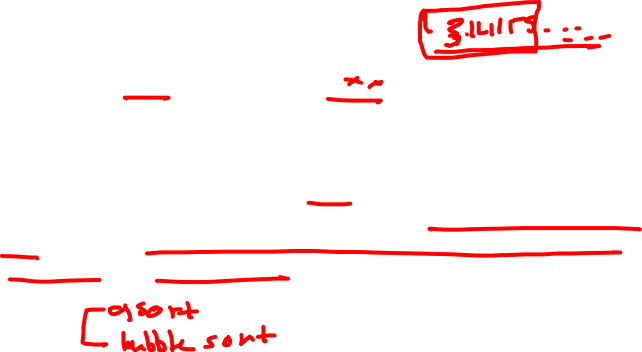 3.14159....
qsort
bubble sort